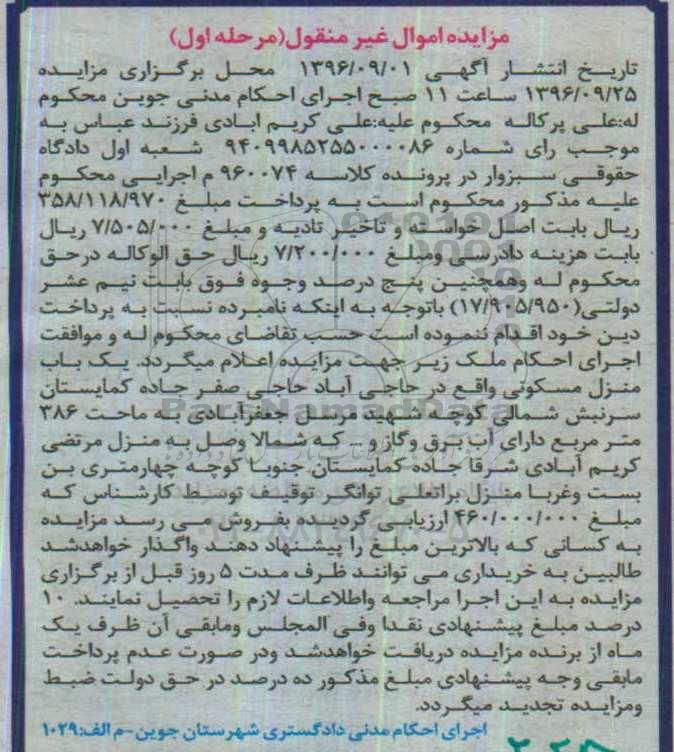 مزایده اموال غیر منقول(مرحله اول)
تاریخ انتشار آگهی ۱۳۹۶/۰۹/۰۱ محل برگزاری مزایده
۱۳۹۶/۰۹/۲۵ ساعت ۱۱ صبح اجرای احکام مدنی جوین محکوم
له:علی پرکاله محکوم علیه:علی کریم ابادی فرزند عباس به
موجب رای شماره ۹۴۰۹۹۸۵۲۵۵۰۰۰۰۸۶ شعبه اول دادگاه
حقوقی سبزوار در پرونده کلاسه ۹۶۰۰۷۴ م اجرایی محکوم
علیه مذکور محکوم است به پرداخت مبلغ ۳۵۸/۱۱۸/۹۷۰
ریال بابت اصل خواسته و تاخیر تادیه و مبلغ ۷/۵۰۵/۰۰۰ ریال
بابت هزینه دادرسی ومبلغ ۷/۲۰۰/۰۰۰ ریال حق الوکاله درحق
محکوم له وهمچنین پنج درصد وجوه فوق بابت نیم عشر
دولتی(۱۷/۹۰۵/۹۵۰) باتوجه به اینکه نامبرده نسبت به پرداخت
دین خود اقدام ننموده است حسب تقاضای محکوم له و موافقت
اجرای احکام ملک زیر جهت مزایده اعلام میگردد. یک باب
منزل مسکونی واقع در حاجی آباد حاجی صفر جاده کمایستان
سرنبش شمالی کوچه شهید مرسل جعفرآبادی به ماحت ۳۸۶
متر مربع دارای آب برق وگاز و ... که شمالا وصل به منزل مرتضی
کریم آبادی شرقا جاده کمایستان جنوبا کوچه چهارمتری بن
بست وغربا منزل براتعلی توانگر توقیف توسط کارشناس که
مبلغ ۴۶۰/۰۰۰/۰۰۰ ارزیابی گردیده بفروش می رسد مزایده
به کسانی که بالاترین مبلغ را پیشنهاد دهند واگذار خواهدشد
طالبین به خریداری می توانند ظرف مدت ۵ روز قبل از برگزاری
مزایده به این اجرا مراجعه واطلاعات لازم را تحصیل نمایند. ۱۰
درصد مبلغ پیشنهادی نقدا وفی المجلس ومابقی آن ظرف یک
ماه از برنده مزایده دریافت خواهدشد ودر صورت عدم پرداخت
مابقی وجه پیشنهادی مبلغ مذکور ده درصد در حق دولت ضبط
ومزایده تجدید میگردد.
اجرای احکام مدنی دادگستری شهرستان جوین-م الف:۱۰۲۹